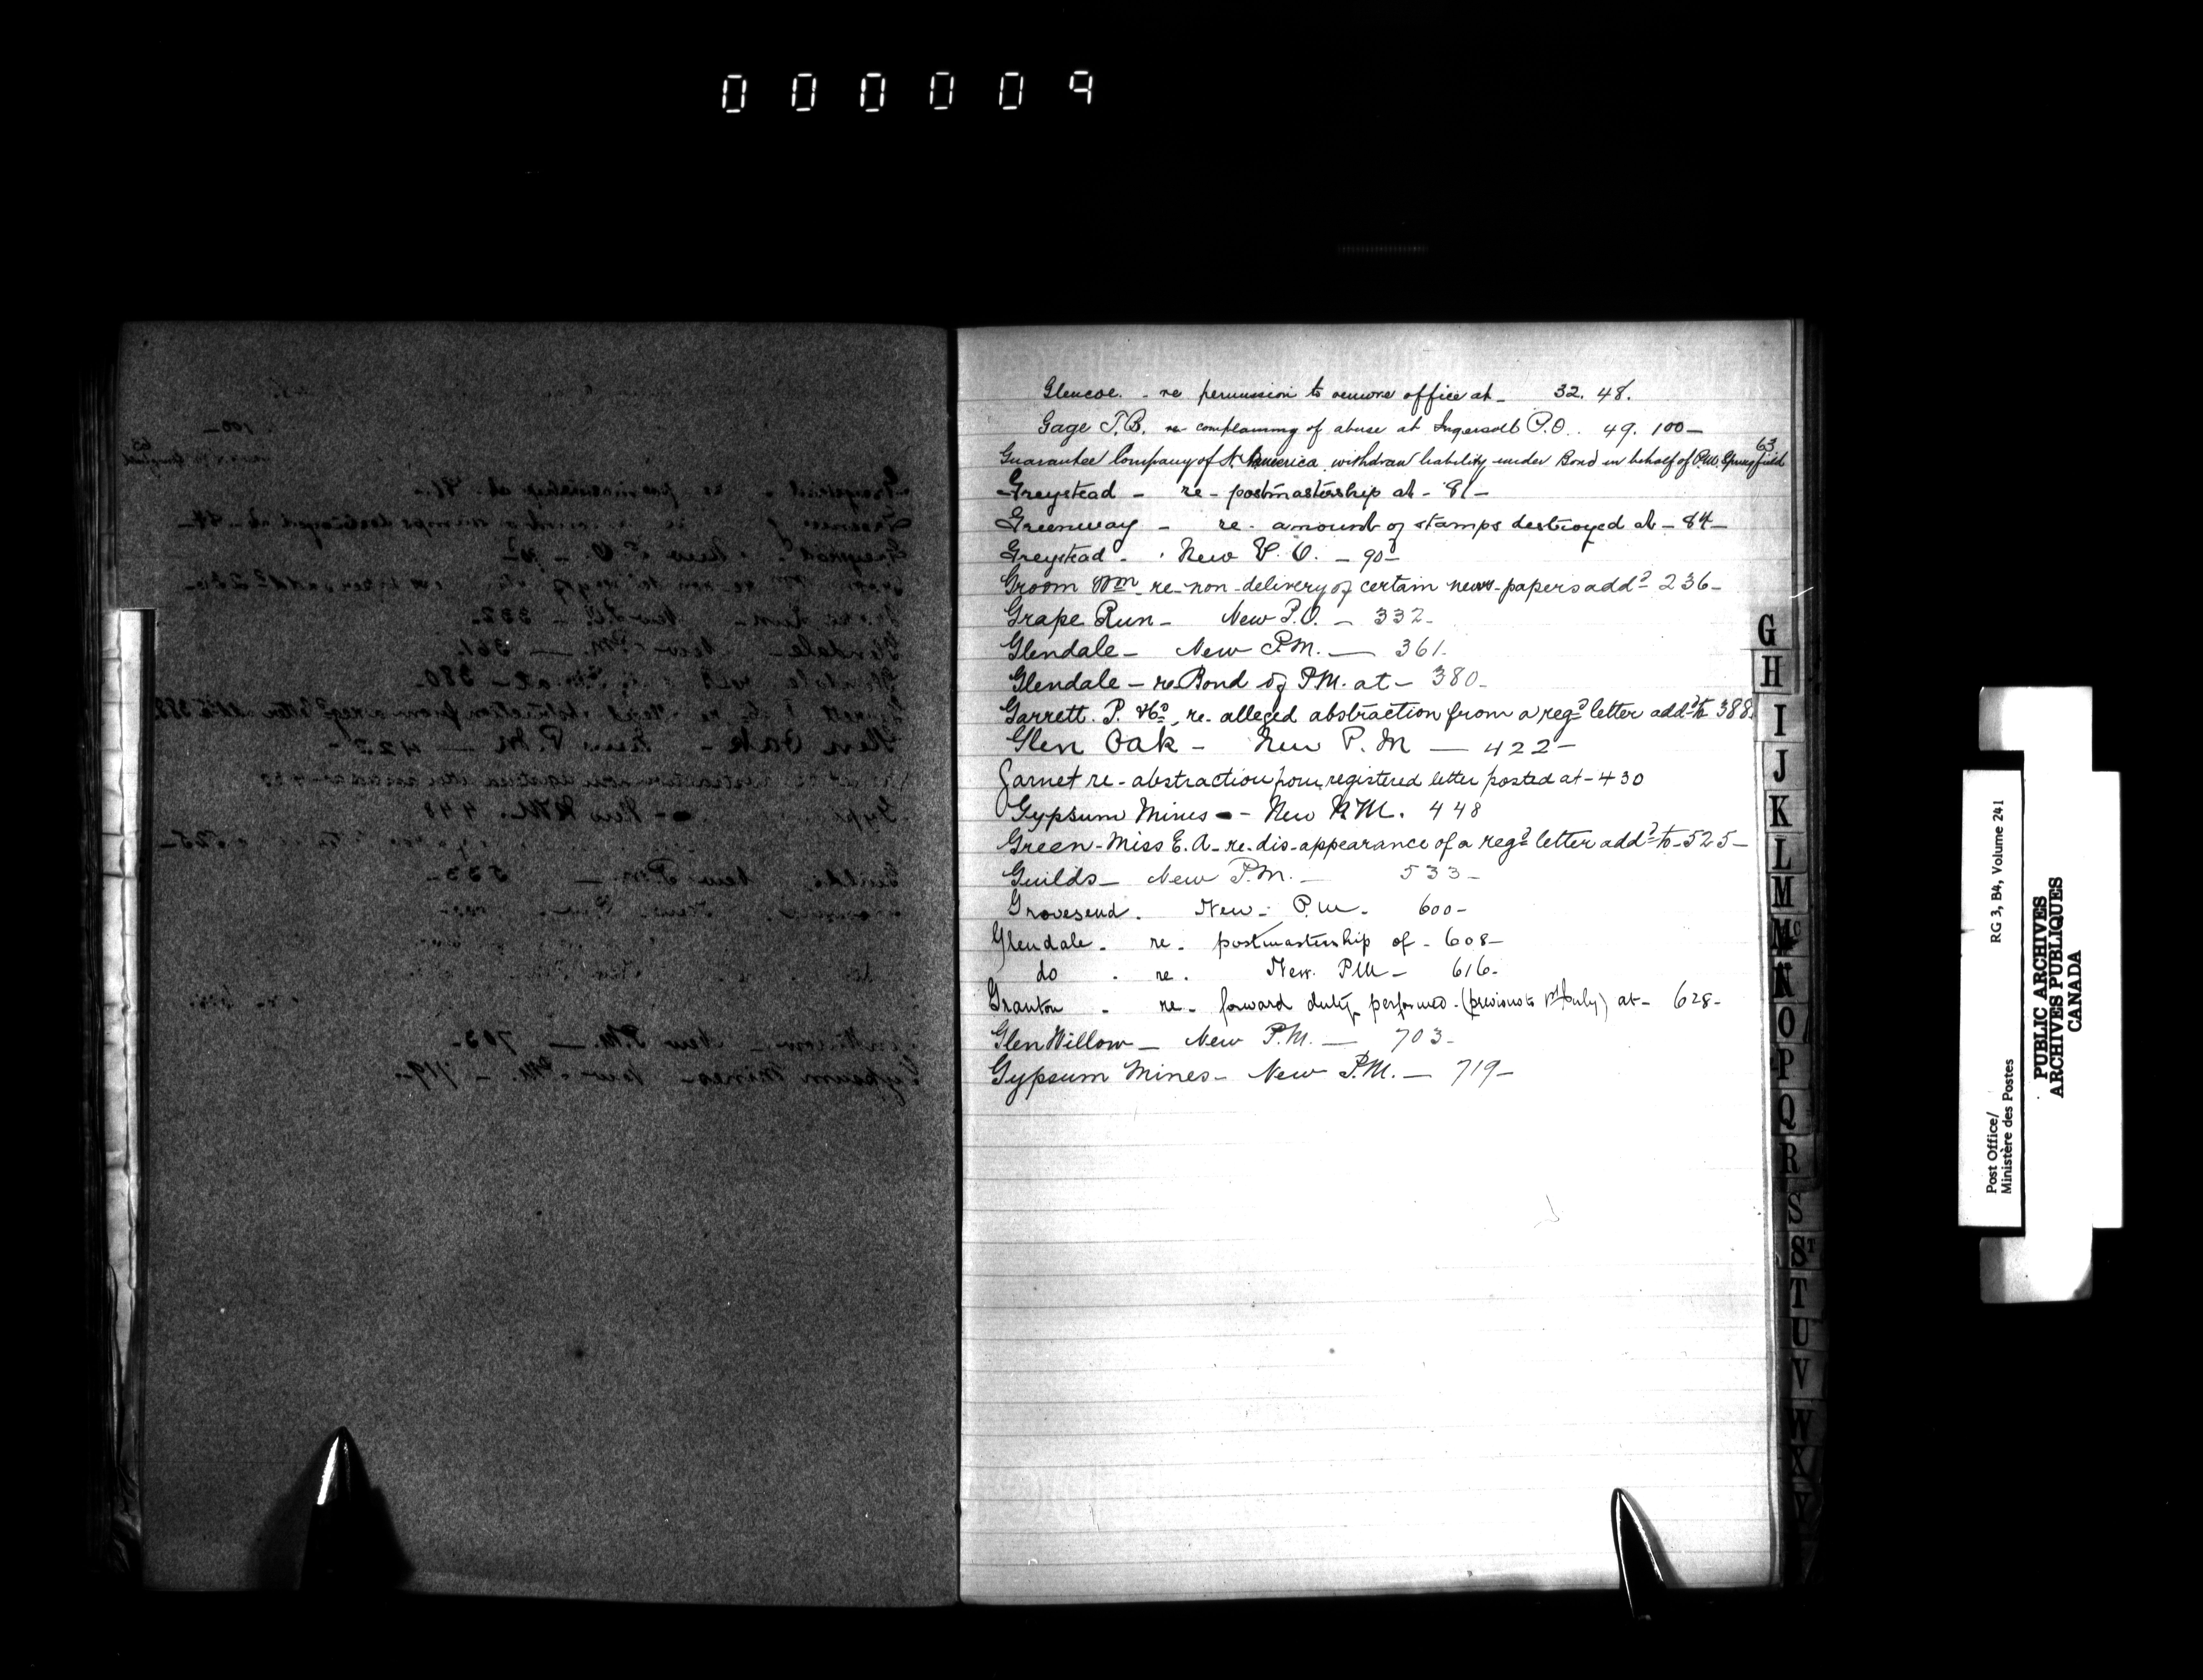 000009
Glencoe. - re permission to remove office at - 32. 48.
Gage J.B. re complaining of abuse at Ingersoll P.O. . 49. 100 -
63
Guarantee Company of N. America withdraw liability under Bond in behalf of P.M. Springfield
Greystead - re - postmastership at - 81 -
Greenway - re - amount of stamps destroyed at - 84 -
Greystead - . New P.O. - 90 -
Groom Wm re - non - delivery of certain news - papers addd 236 -
Grape Run - New P.O. - 332 -
Glendale - New P.M. - 361.
Glendale - re Bond of P.M. at - 380 -
Garrett. P. re - alleged abstraction from a regd letter addd to 388.
Glen Oak - New P.M - 422 -
Garnet re - abstraction from registered letter posted at - 430
Gypsum Mines - New P.M. 448
Green - Miss E. A - re - dis - appearance of a regd letter addd to - 525 -
Guilds - New P.M. - 533 -
Gravesend . New - P.M. 600 -
Glendale - re - postmastership of - 608 -
do - re . New P.M - 616 -
Granton - re - forward duty performed - (previous to 1st July) at - 628 -
Glen Willow - New P.M. - 703 -
Gypsum Mines - New P.M. - 719 -
G
H
I
J
K
L
M
Mc
N
O
P
Q
R
S
ST
T
U
V
W
X
Y
Post Office/
Ministère des Postes
RG 3, B4, Volume 241
PUBLIC ARCHIVES
ARCHIVES PUBLIQUES
CANADA